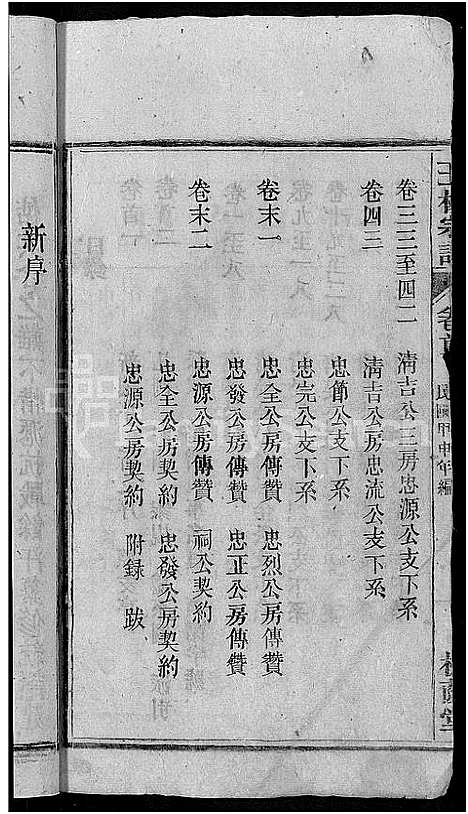 卷三三至四二 清吉公三房忠源公支下系
卷四三 清吉公房忠流公支下系
忠節公支下系
忠完公支下系
卷末一 忠全公房傳贊 忠烈公房傳贊
忠發公房傳贊 忠正公房傳贊
卷末二 忠源公房傳贊 祠公契約
忠全公房契約 忠發公房契約
忠源公房契約 附錄 跋
新序
民國甲申年編